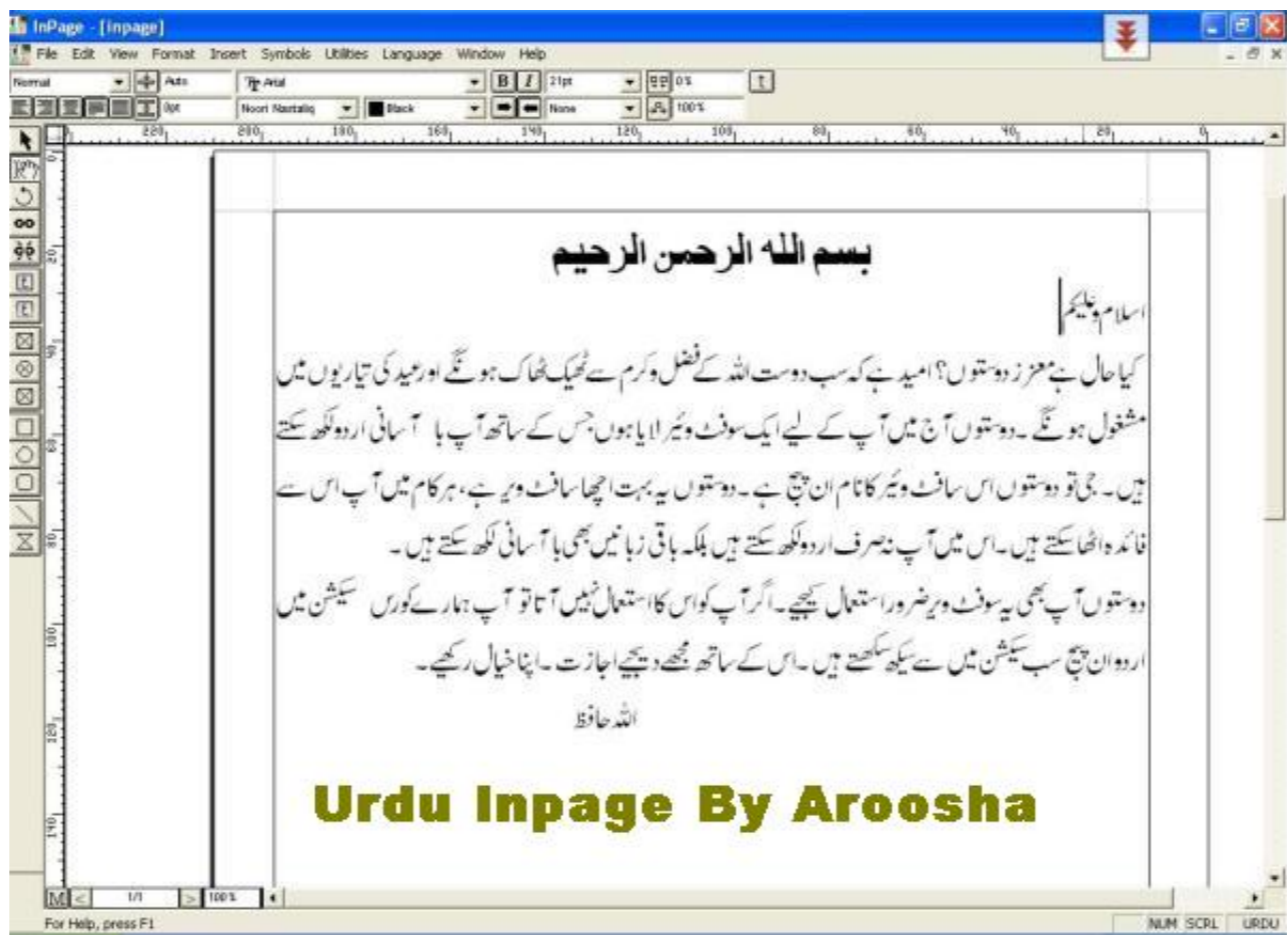 InPage - [inpage]
File Edit View Format Insert Symbols Utilities Language Window Help
Normal Auto Arial B I 21pt 0%
0pt Noori Nastaliq Black None 100%
220 200 180 160 140 120 100 80 60 40 20 0
0
20
40
60
80
100
120
140
بسم الله الرحمن الرحيم
اسلام وعلیکم
کیا حال ہے معزز دوستوں؟ امید ہے کہ سب دوست اللہ کے فضل و کرم سے ٹھیک ٹھاک ہونگے اور عید کی تیاریوں میں
مشغول ہونگے ۔ دوستوں آج میں آپ کے لیے ایک سوفٹ وئیر لایا ہوں جس کے ساتھ آپ با آسانی اردو لکھ سکتے
ہیں ۔ جی تو دوستوں اس سافٹ وئیر کا نام ان پیج ہے ۔ دوستوں یہ بہت اچھا سافٹ ویر ہے، ہر کام میں آپ اس سے
فائدہ اٹھا سکتے ہیں ۔ اس میں آپ نہ صرف اردو لکھ سکتے ہیں بلکہ باقی زبانیں بھی با آسانی لکھ سکتے ہیں ۔
دوستوں آپ بھی یہ سوفٹ ویر ضرور استعمال کیجیے ۔ اگر آپ کو اس کا استعمال نہیں آتا تو آپ ہمارے کورس سیکشن میں
اردو ان پیج سب سیکشن میں سے سیکھ سکھتے ہیں ۔ اس کے ساتھ مجھے دیجیے اجازت ۔ اپنا خیال رکھیے ۔
اللہ حافظ
Urdu Inpage By Aroosha
M < 1/1 > 100%
For Help, press F1 NUM SCRL URDU